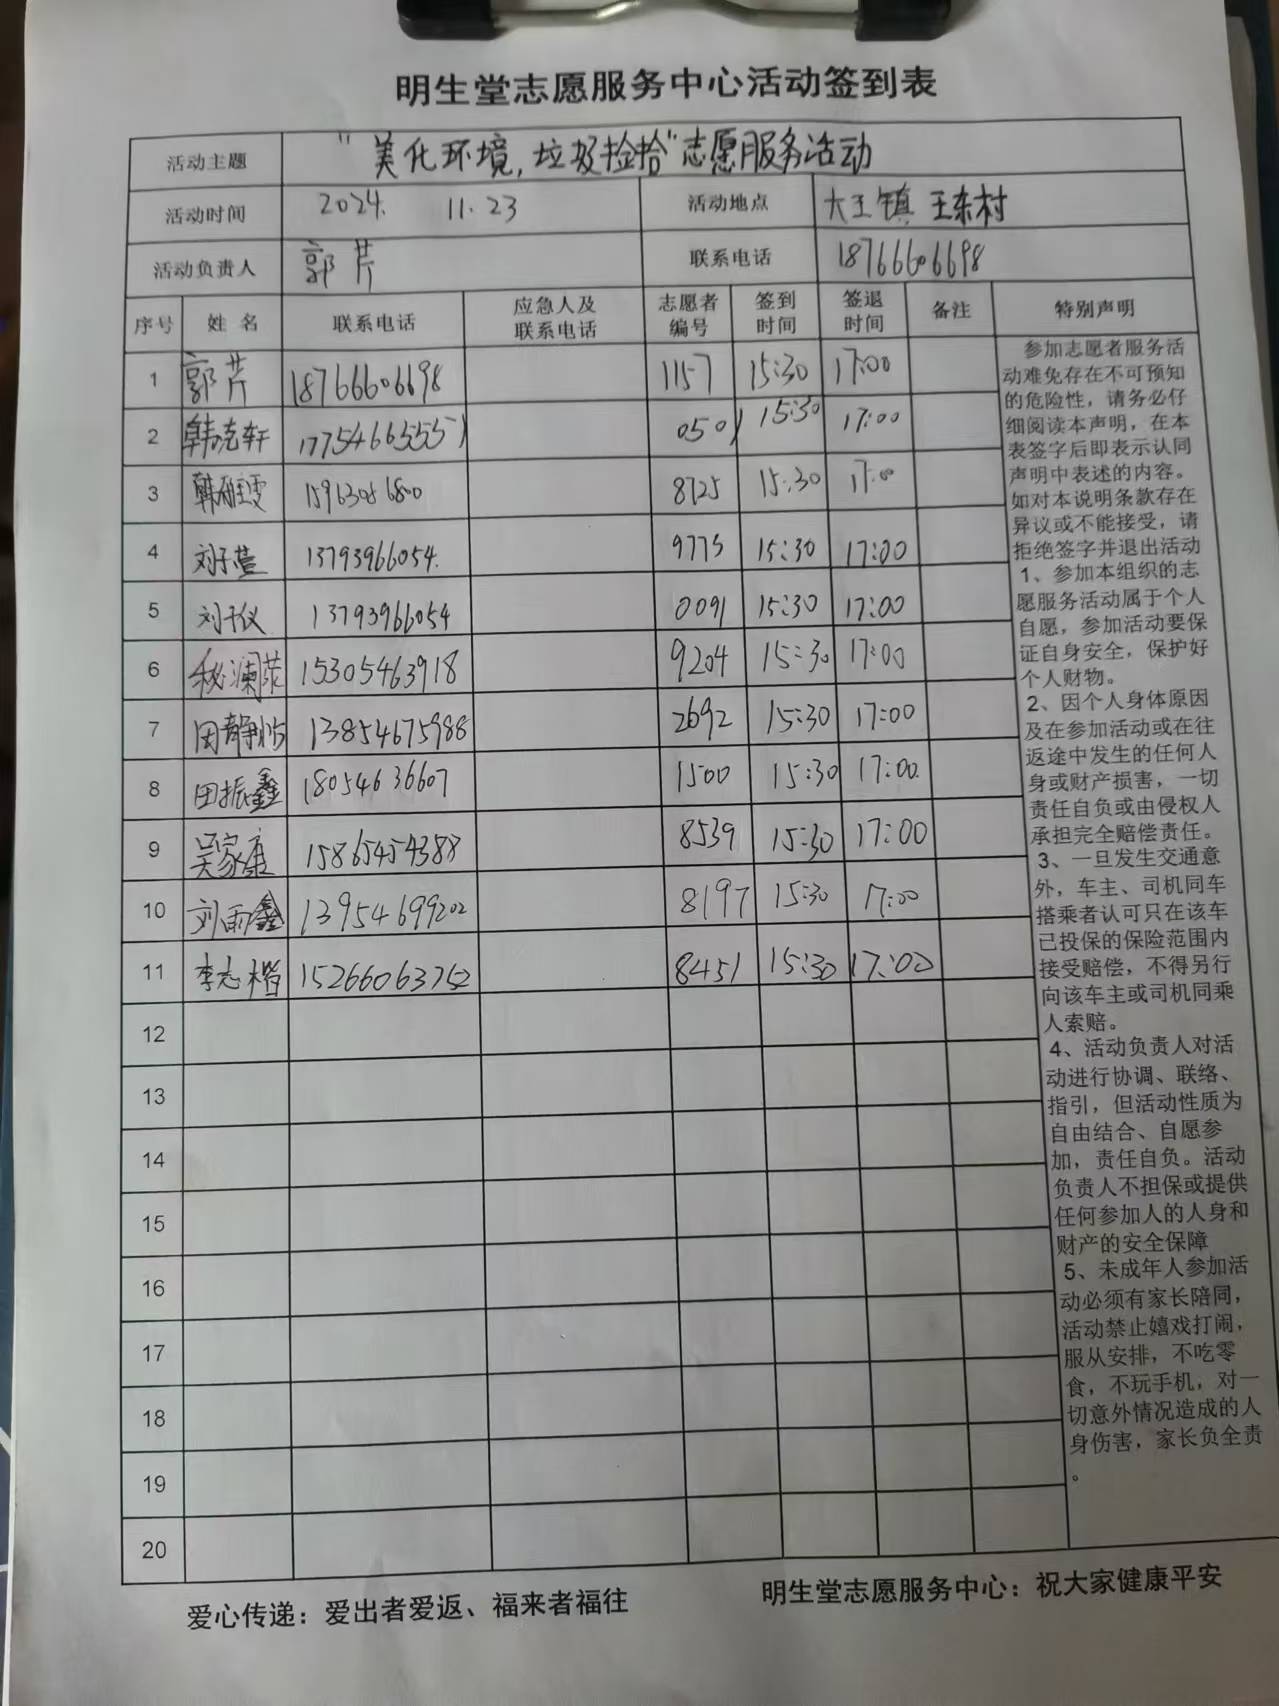 明生堂志愿服务中心活动签到表
活动主题 "美化环境,垃圾捡拾"志愿服务活动
活动时间 2024. 11.23 活动地点 大王镇 王东村
活动负责人 郭芹 联系电话 18766606698
序号 姓名 联系电话 应急人及联系电话 志愿者编号 签到时间 签退时间 备注 特别声明
1 郭芹 18766606698 1157 15:30 17:00
2 17754665551 0501 15:30 17:00
3 8725 15:30 17:00
4 刘子萱 13793966054. 9775 15:30 17:00
5 刘子仪 13793966054 0091 15:30 17:00
6 15305463918 9204 15:30 17:00
7 田静怡 13854675988 2692 15:30 17:00
8 田振鑫 18054636607 1500 15:30 17:00
9 吴家康 15865454388 8539 15:30 17:00
10 刘雨鑫 13954699202 8197 15:30 17:00
11 李志楷 15266063752 8451 15:30 17:00
12
13
14
15
16
17
18
19
20
参加志愿者服务活
动难免存在不可预知
的危险性，请务必仔
细阅读本声明，在本
表签字后即表示认同
声明中表述的内容。
如对本说明条款存在
异议或不能接受，请
拒绝签字并退出活动
1、参加本组织的志
愿服务活动属于个人
自愿，参加活动要保
证自身安全，保护好
个人财物。
2、因个人身体原因
及在参加活动或在往
返途中发生的任何人
身或财产损害，一切
责任自负或由侵权人
承担完全赔偿责任。
3、一旦发生交通意
外，车主、司机同车
搭乘者认可只在该车
已投保的保险范围内
接受赔偿，不得另行
向该车主或司机同乘
人索赔。
4、活动负责人对活
动进行协调、联络、
指引，但活动性质为
自由结合、自愿参
加，责任自负。活动
负责人不担保或提供
任何参加人的人身和
财产的安全保障
5、未成年人参加活
动必须有家长陪同，
活动禁止嬉戏打闹，
服从安排，不吃零
食，不玩手机，对一
切意外情况造成的人
身伤害，家长负全责
。
爱心传递：爱出者爱返、福来者福往 明生堂志愿服务中心：祝大家健康平安